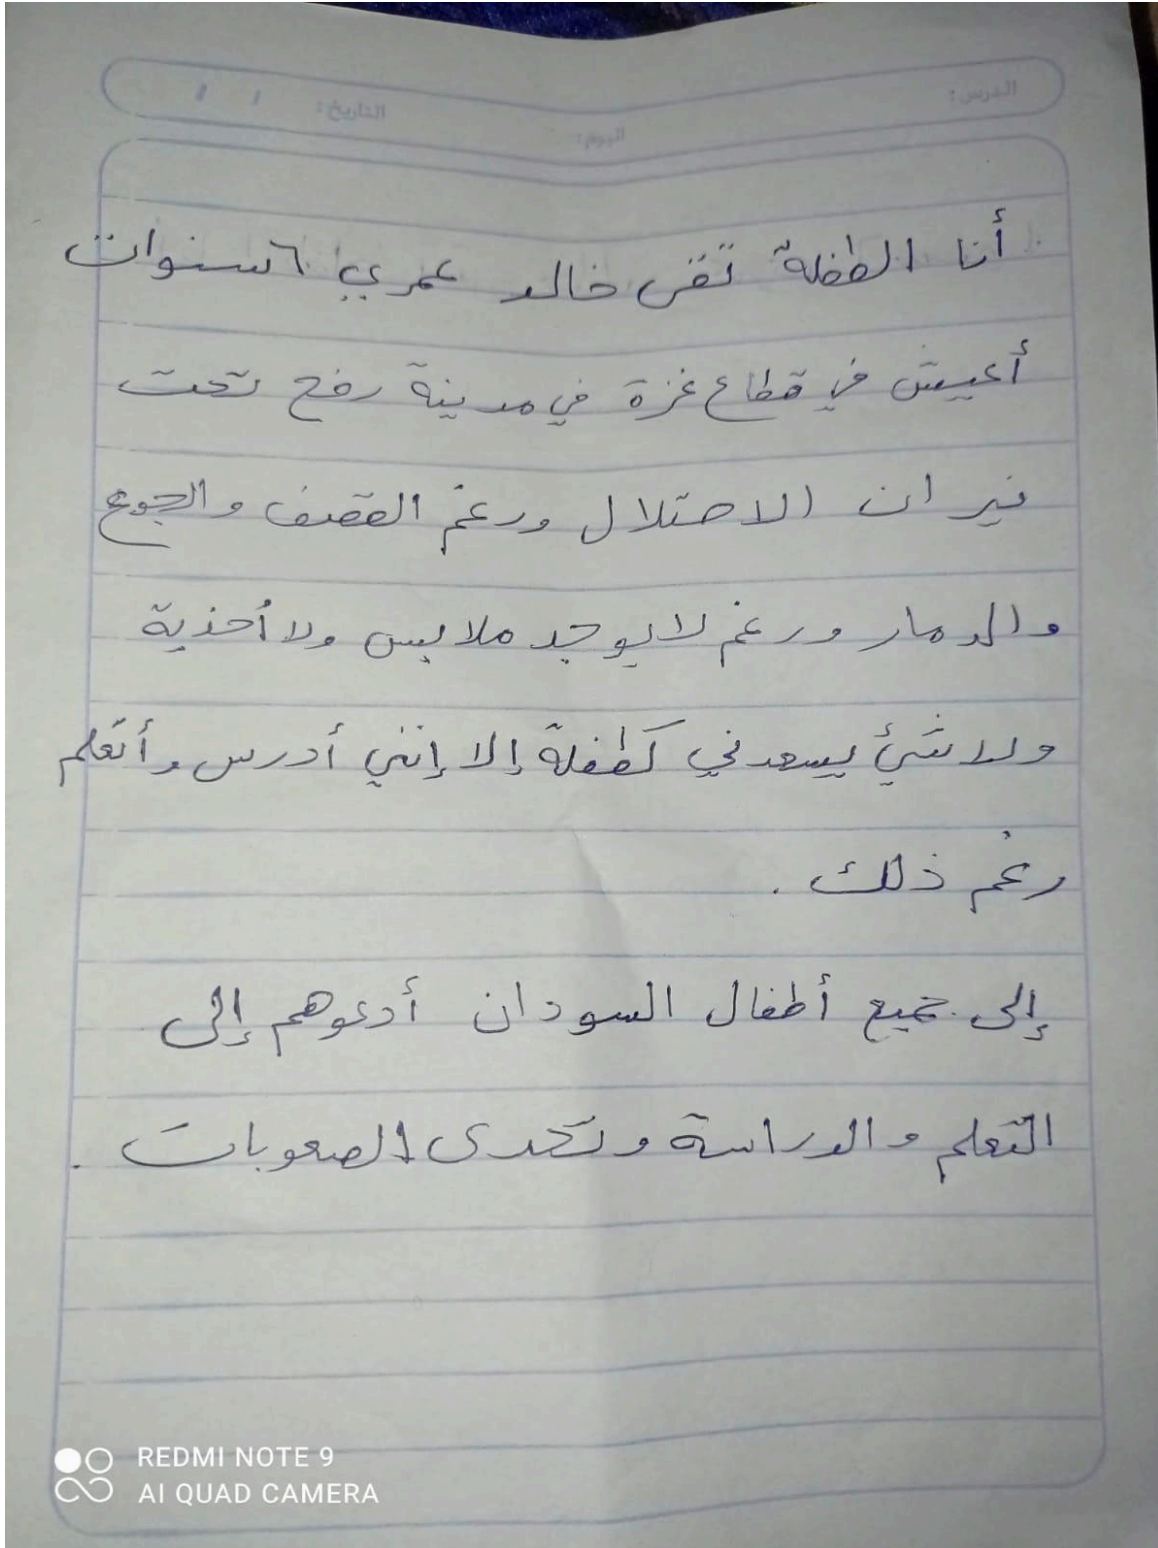 الدرس:
اليوم:
التاريخ: / /
أنا الطفلة تقى خالد عمري ٦ سنوات
أعيش في قطاع غزة في مدينة رفح تحت
نيران الاحتلال ورغم القصف والجوع
والدمار ورغم لا يوجد ملابس ولا أحذية
ولا شيئ يسعدني كطفلة إلا إنني أدرس وأتعلم
رغم ذلك .
إلى جميع أطفال السودان أدعوهم إلى
التعلم والدراسة وتحدى الصعوبات .
REDMI NOTE 9
AI QUAD CAMERA